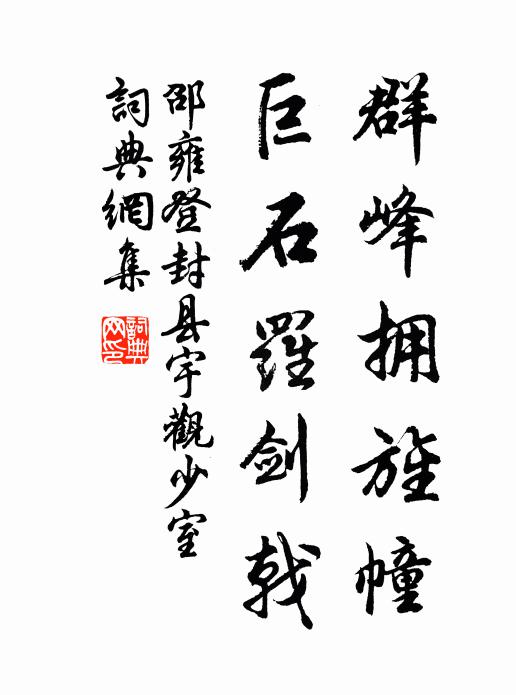 群峰拥旌幢
巨石羅劍戟
邵雍登封县宇觀少室
詞典網集
詞典网印